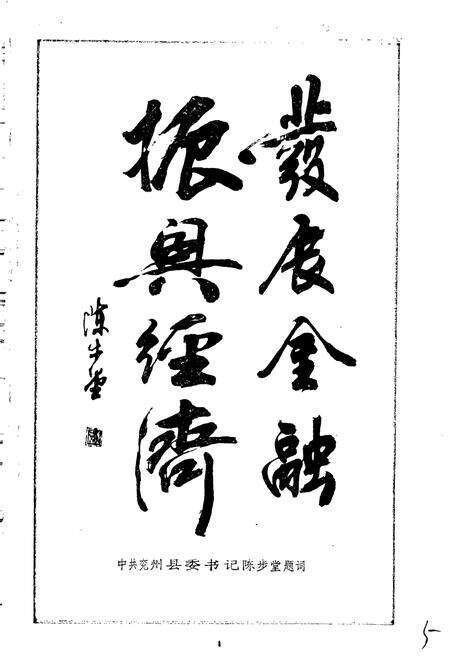 發展金融
振興經濟
陈步堂
中共兖州县委书记陈步堂题词
5